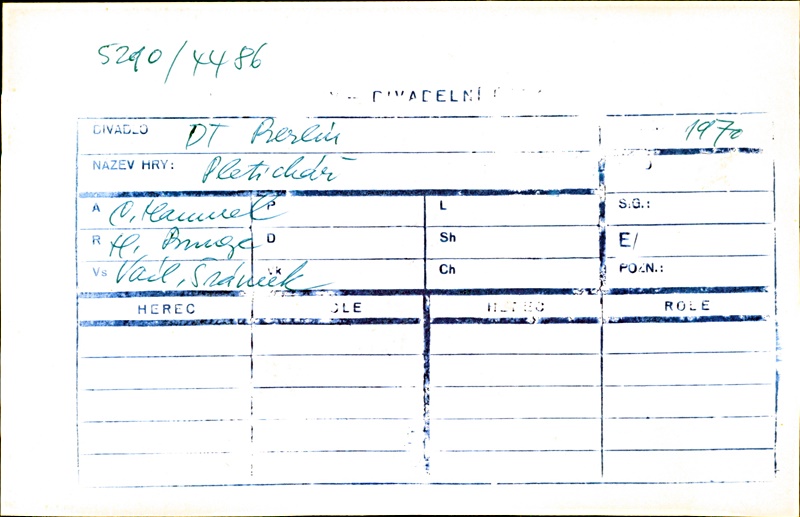 5290/4486
DIVADELNÍ
DIVADLO DT Berlin 1970
NÁZEV HRY: Pletichář
A P L S.G.:
R H. D Sh E/
Vs Václ. Šrámek Vk Ch POZN.:
HEREC ROLE HEREC ROLE